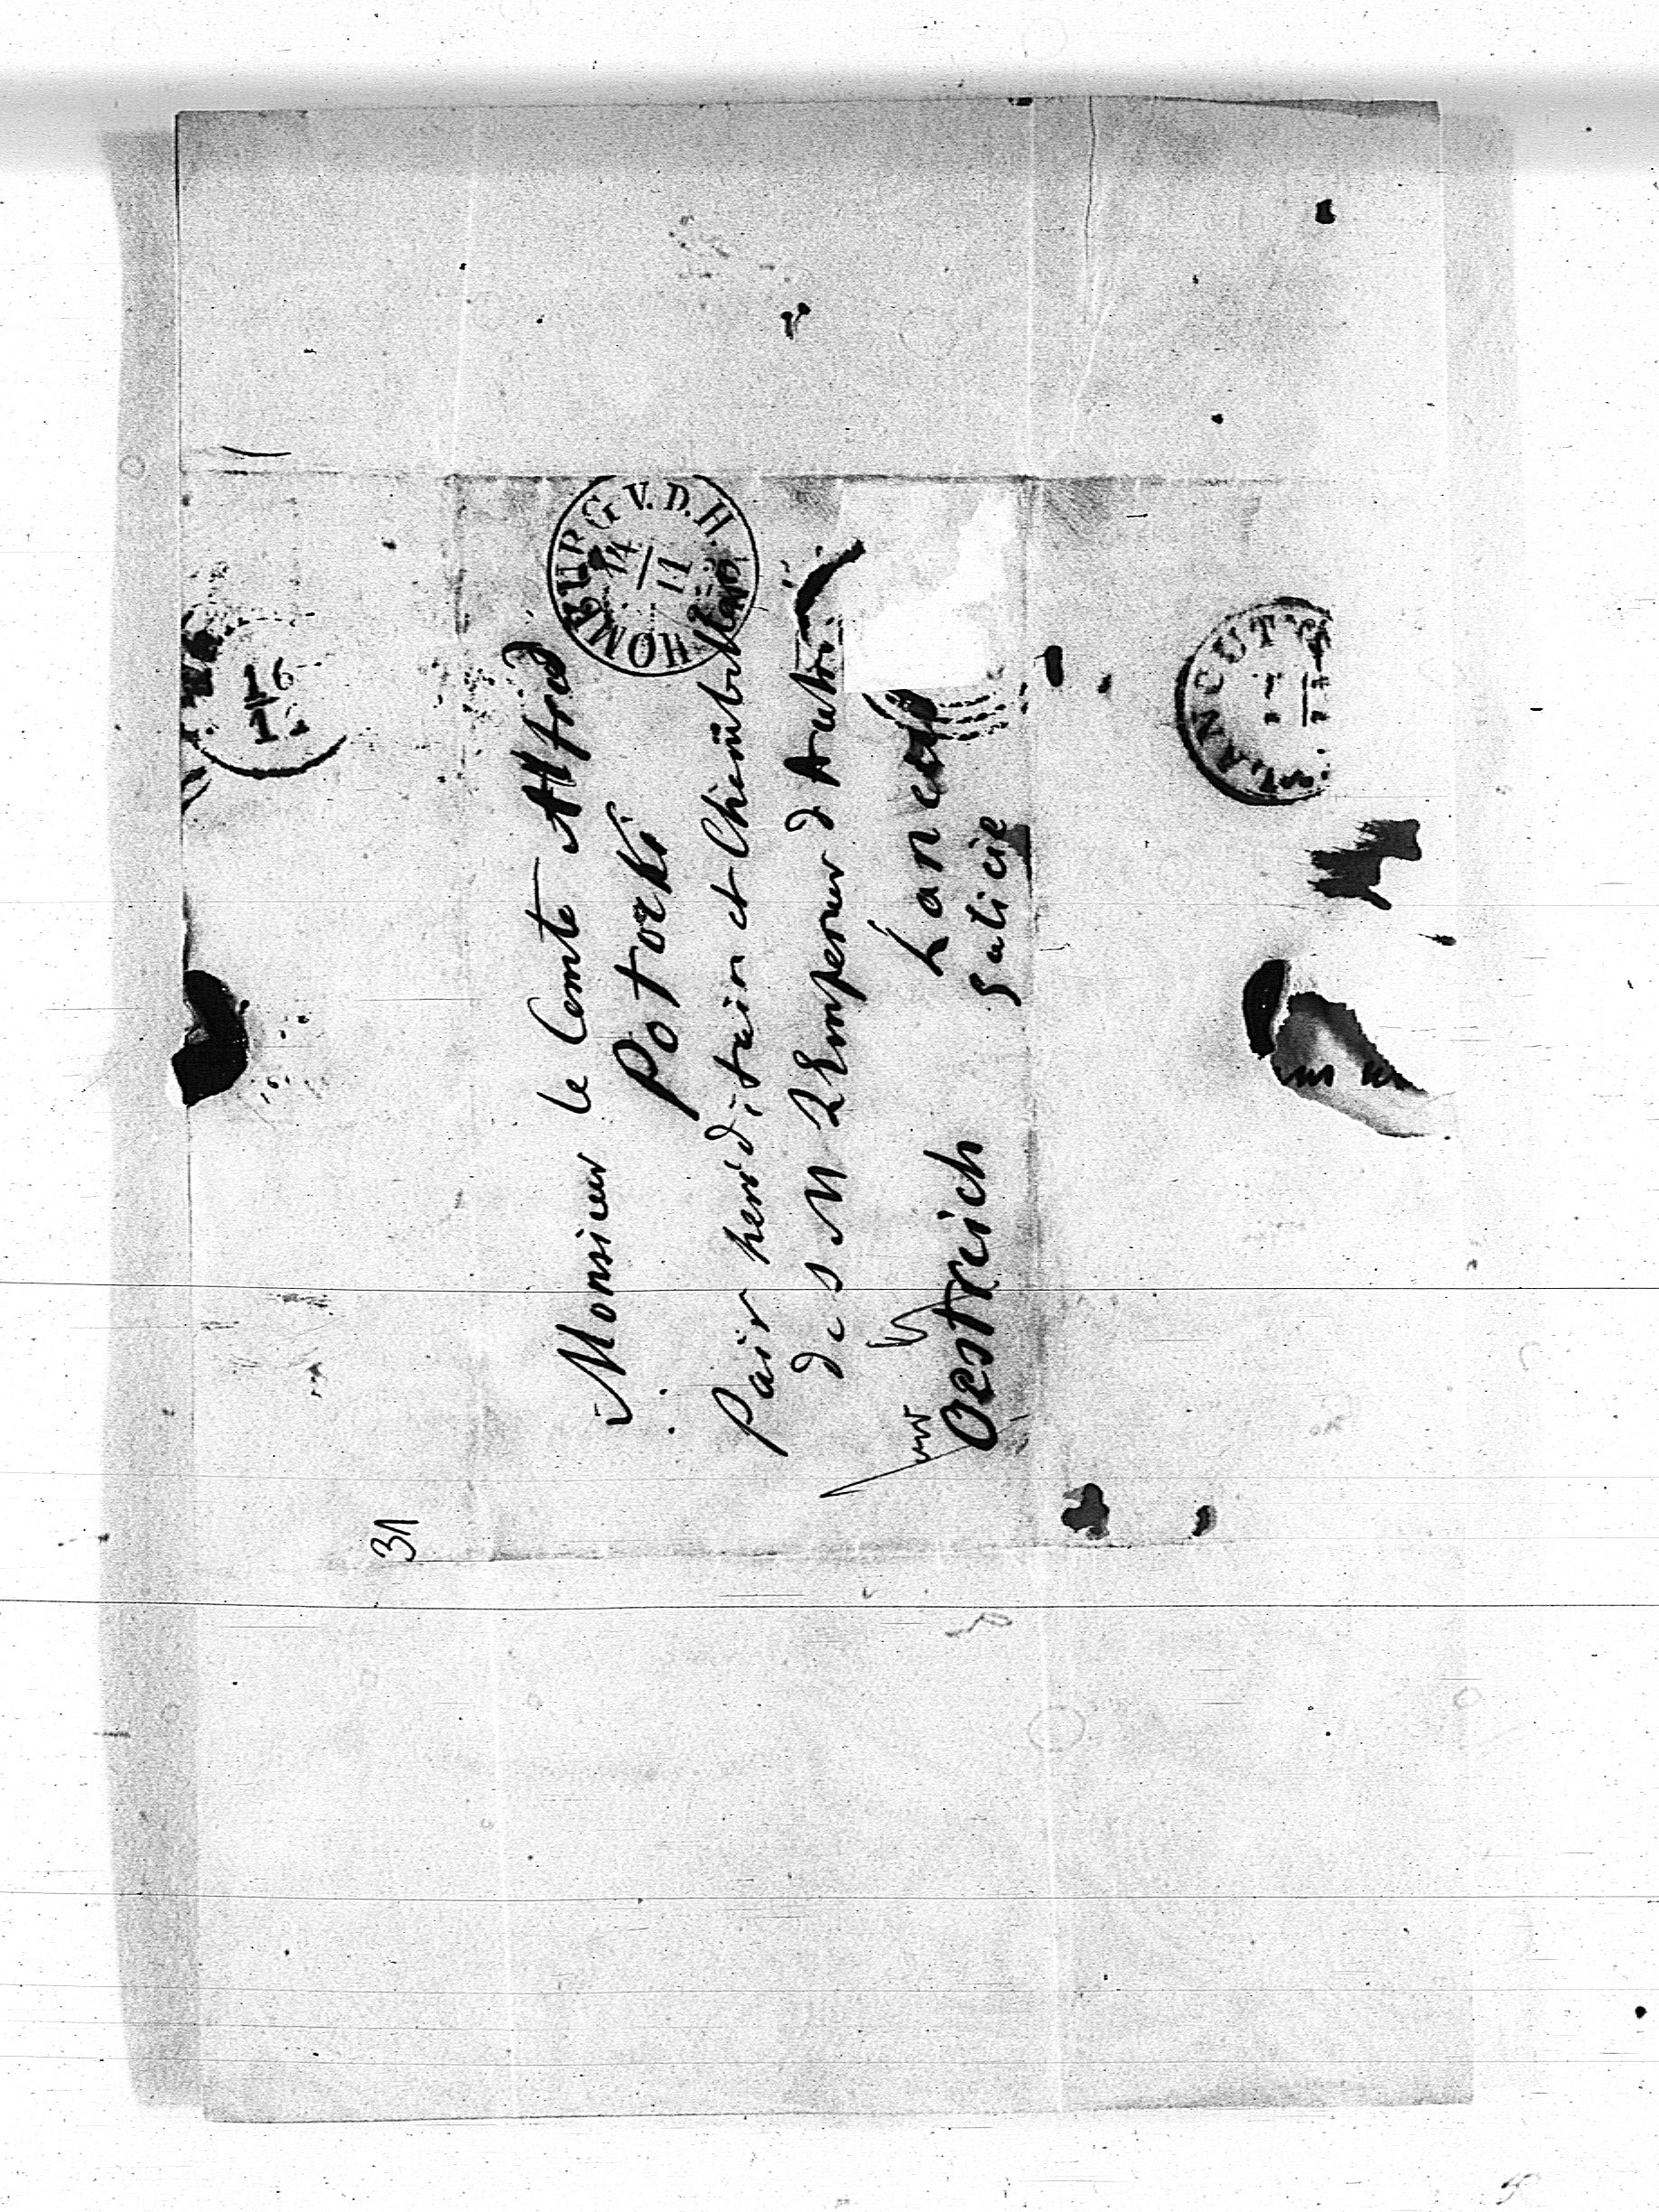 Monsieur le Comte Alfred
Potocki
Pair herèditair et Chambellan
de s M L Empereur d Autri
Lancut
Galicie
Oestreich
HOMBURG V.D.H.
14
11
16
11
LANCUT
31